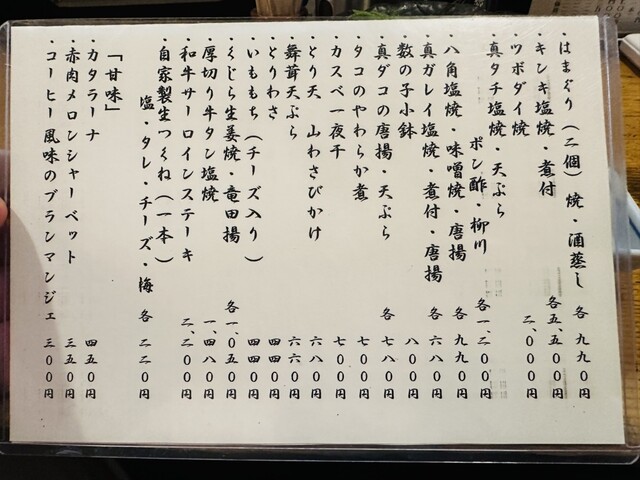 ・はまぐり（二個）焼・酒蒸し 各 九九〇円
・キンキ塩焼・煮付 各五、五〇〇円
・ツボダイ焼 二、〇〇〇円
・真タチ塩焼・天ぷら
ポン酢・柳川 各一、二〇〇円
・八角塩焼・味噌焼・唐揚 各 九九〇円
・真ガレイ塩焼・煮付・唐揚 各 六八〇円
・数の子小鉢 八〇〇円
・真ダコの唐揚・天ぷら 各 七八〇円
・タコのやわらか煮 七〇〇円
・カスベ一夜干 七〇〇円
・とり天 山わさびかけ 六八〇円
・舞茸天ぷら 六六〇円
・とりわさ 四四〇円
・いももち（チーズ入り） 四四〇円
・くじら生姜焼・竜田揚 各一、〇五〇円
・厚切り牛タン塩焼 一、四八〇円
・和牛サーロインステーキ 二、二〇〇円
・自家製生つくね（一本）
塩・タレ・チーズ・梅 各 二二〇円
「甘味」
・カタラーナ 四五〇円
・赤肉メロンシャーベット 三五〇円
・コーヒー風味のブランマンジェ 三〇〇円